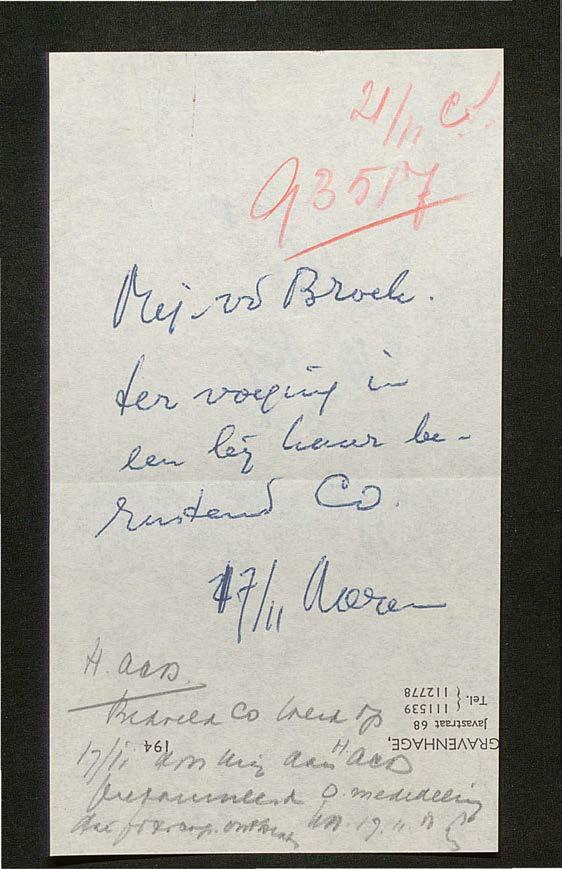 21/11 Co!
93517
Mej. vd Broek.
ter voeging in
een bij haar be-
rustend Co.
17/11
H. ACD.
Bedoeld Co werd op
17/11 door mij aan H. ACD
geretourneerd
mededeeling
dat 19.11
GRAVENHAGE, 194
Javastraat 68
Tel. { 111539
112778